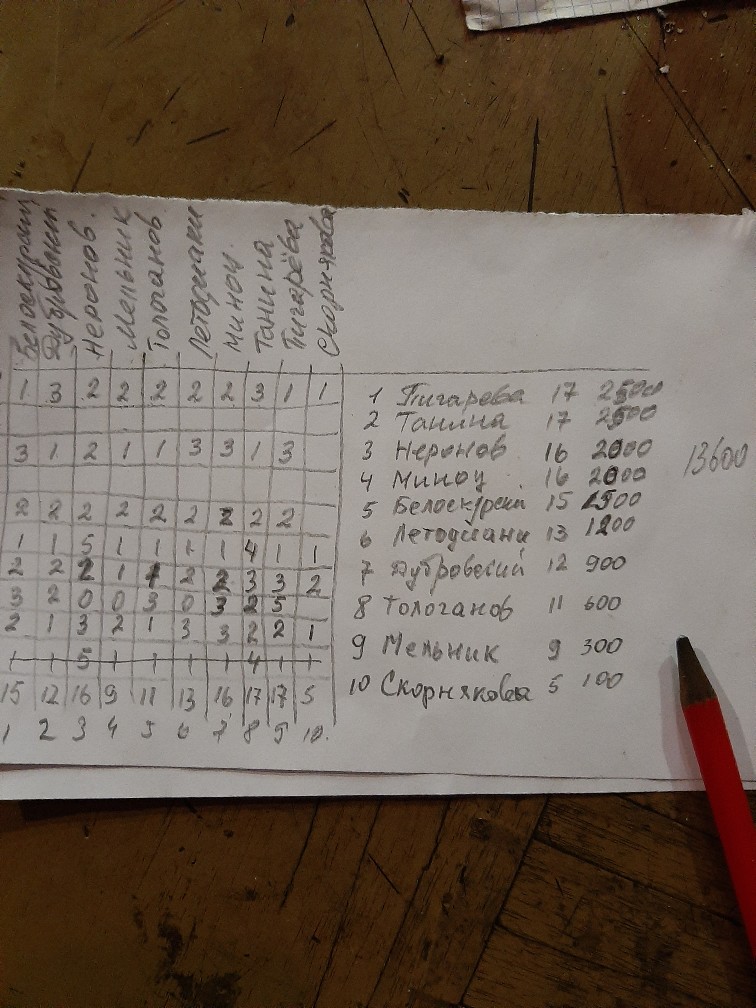 Белоскурский Дубровский Неронов. Мельник Тологанов Летодиани Миноц. Танина Пигарёва Скорнякова
1 3 2 2 2 2 2 3 1 1
3 1 2 1 1 3 3 1 3
2 2 2 2 2 2 2 2 2
1 1 5 1 1 1 1 4 1 1
2 2 2 1 1 2 2 3 3 2
3 2 0 0 3 0 3 2 5
2 1 3 2 1 3 3 2 2 1
1 1 5 1 1 1 1 4 1 1
15 12 16 9 11 13 16 17 17 5
1 2 3 4 5 6 7 8 9 10.
1 Пигарева 17 2500
2 Танина 17 2500
3 Неронов 16 2000
4 Миноц 16 2000
5 Белоскурский 15 1500
6 Летодиани 13 1200
7 Дубровский 12 900
8 Тологанов 11 600
9 Мельник 9 300
10 Скорнякова 5 100
13600